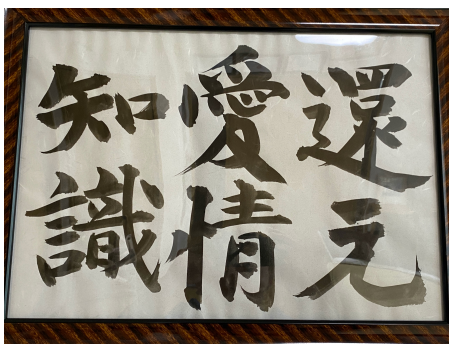 還元
愛情
知識